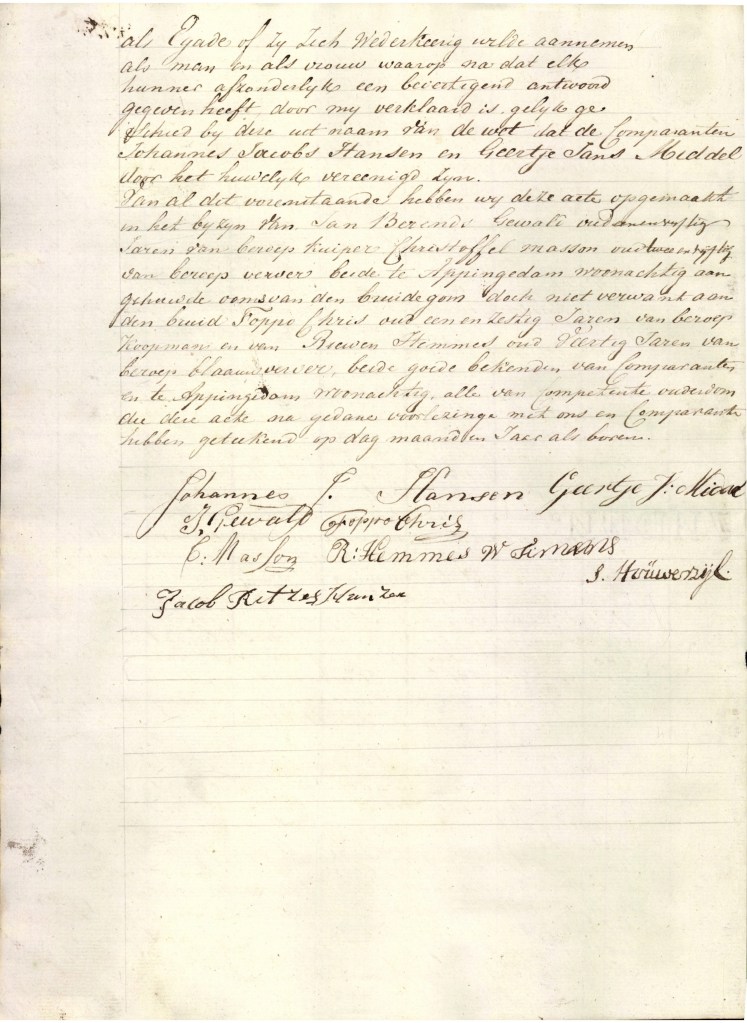 als Egade of Zy Zich Wederkeerig wilde aannemen
als man en als vrouw waarop na dat elk
hunner afzonderlyk een bevestigend antwoord
gegeven heeft door my verklaard is gelyk ge
schied by dese uit naam van de wet dat de Comparanten
Johannes Jacobs Hansen en Geertje Jans Middel
door het huwelyk vereenigd zyn.
Van al dit vorenstaande hebben wy deze acte opgemaakt
in het byzyn van Jan Berends Gewald oud
Jaren van beroep kuiper Christoffel masson oud
van beroep verver beide te Appingedam woonachtig aan
gehuwde ooms van den bruidegom doch niet verwant aan
den bruid Foppo Chris oud een en zestig Jaren van beroep
Koopman en van Riewen Hemmes oud Veertig Jaren van
beroep blaauwverver, beide goede bekenden van Comparanten
en te Appingedam woonachtig, alle van Competente ouderdom
die dese acte na gedane voorlezinge met ons en Comparante
hebben getekend op dag maand en Jaar als boven.
Johannes J. Hansen Geertje J: Middel
J. Gewald Foppo Chris
C: Masson R: Hemmes W Simens
S. Houwerzijl.
Jacob Ritzes